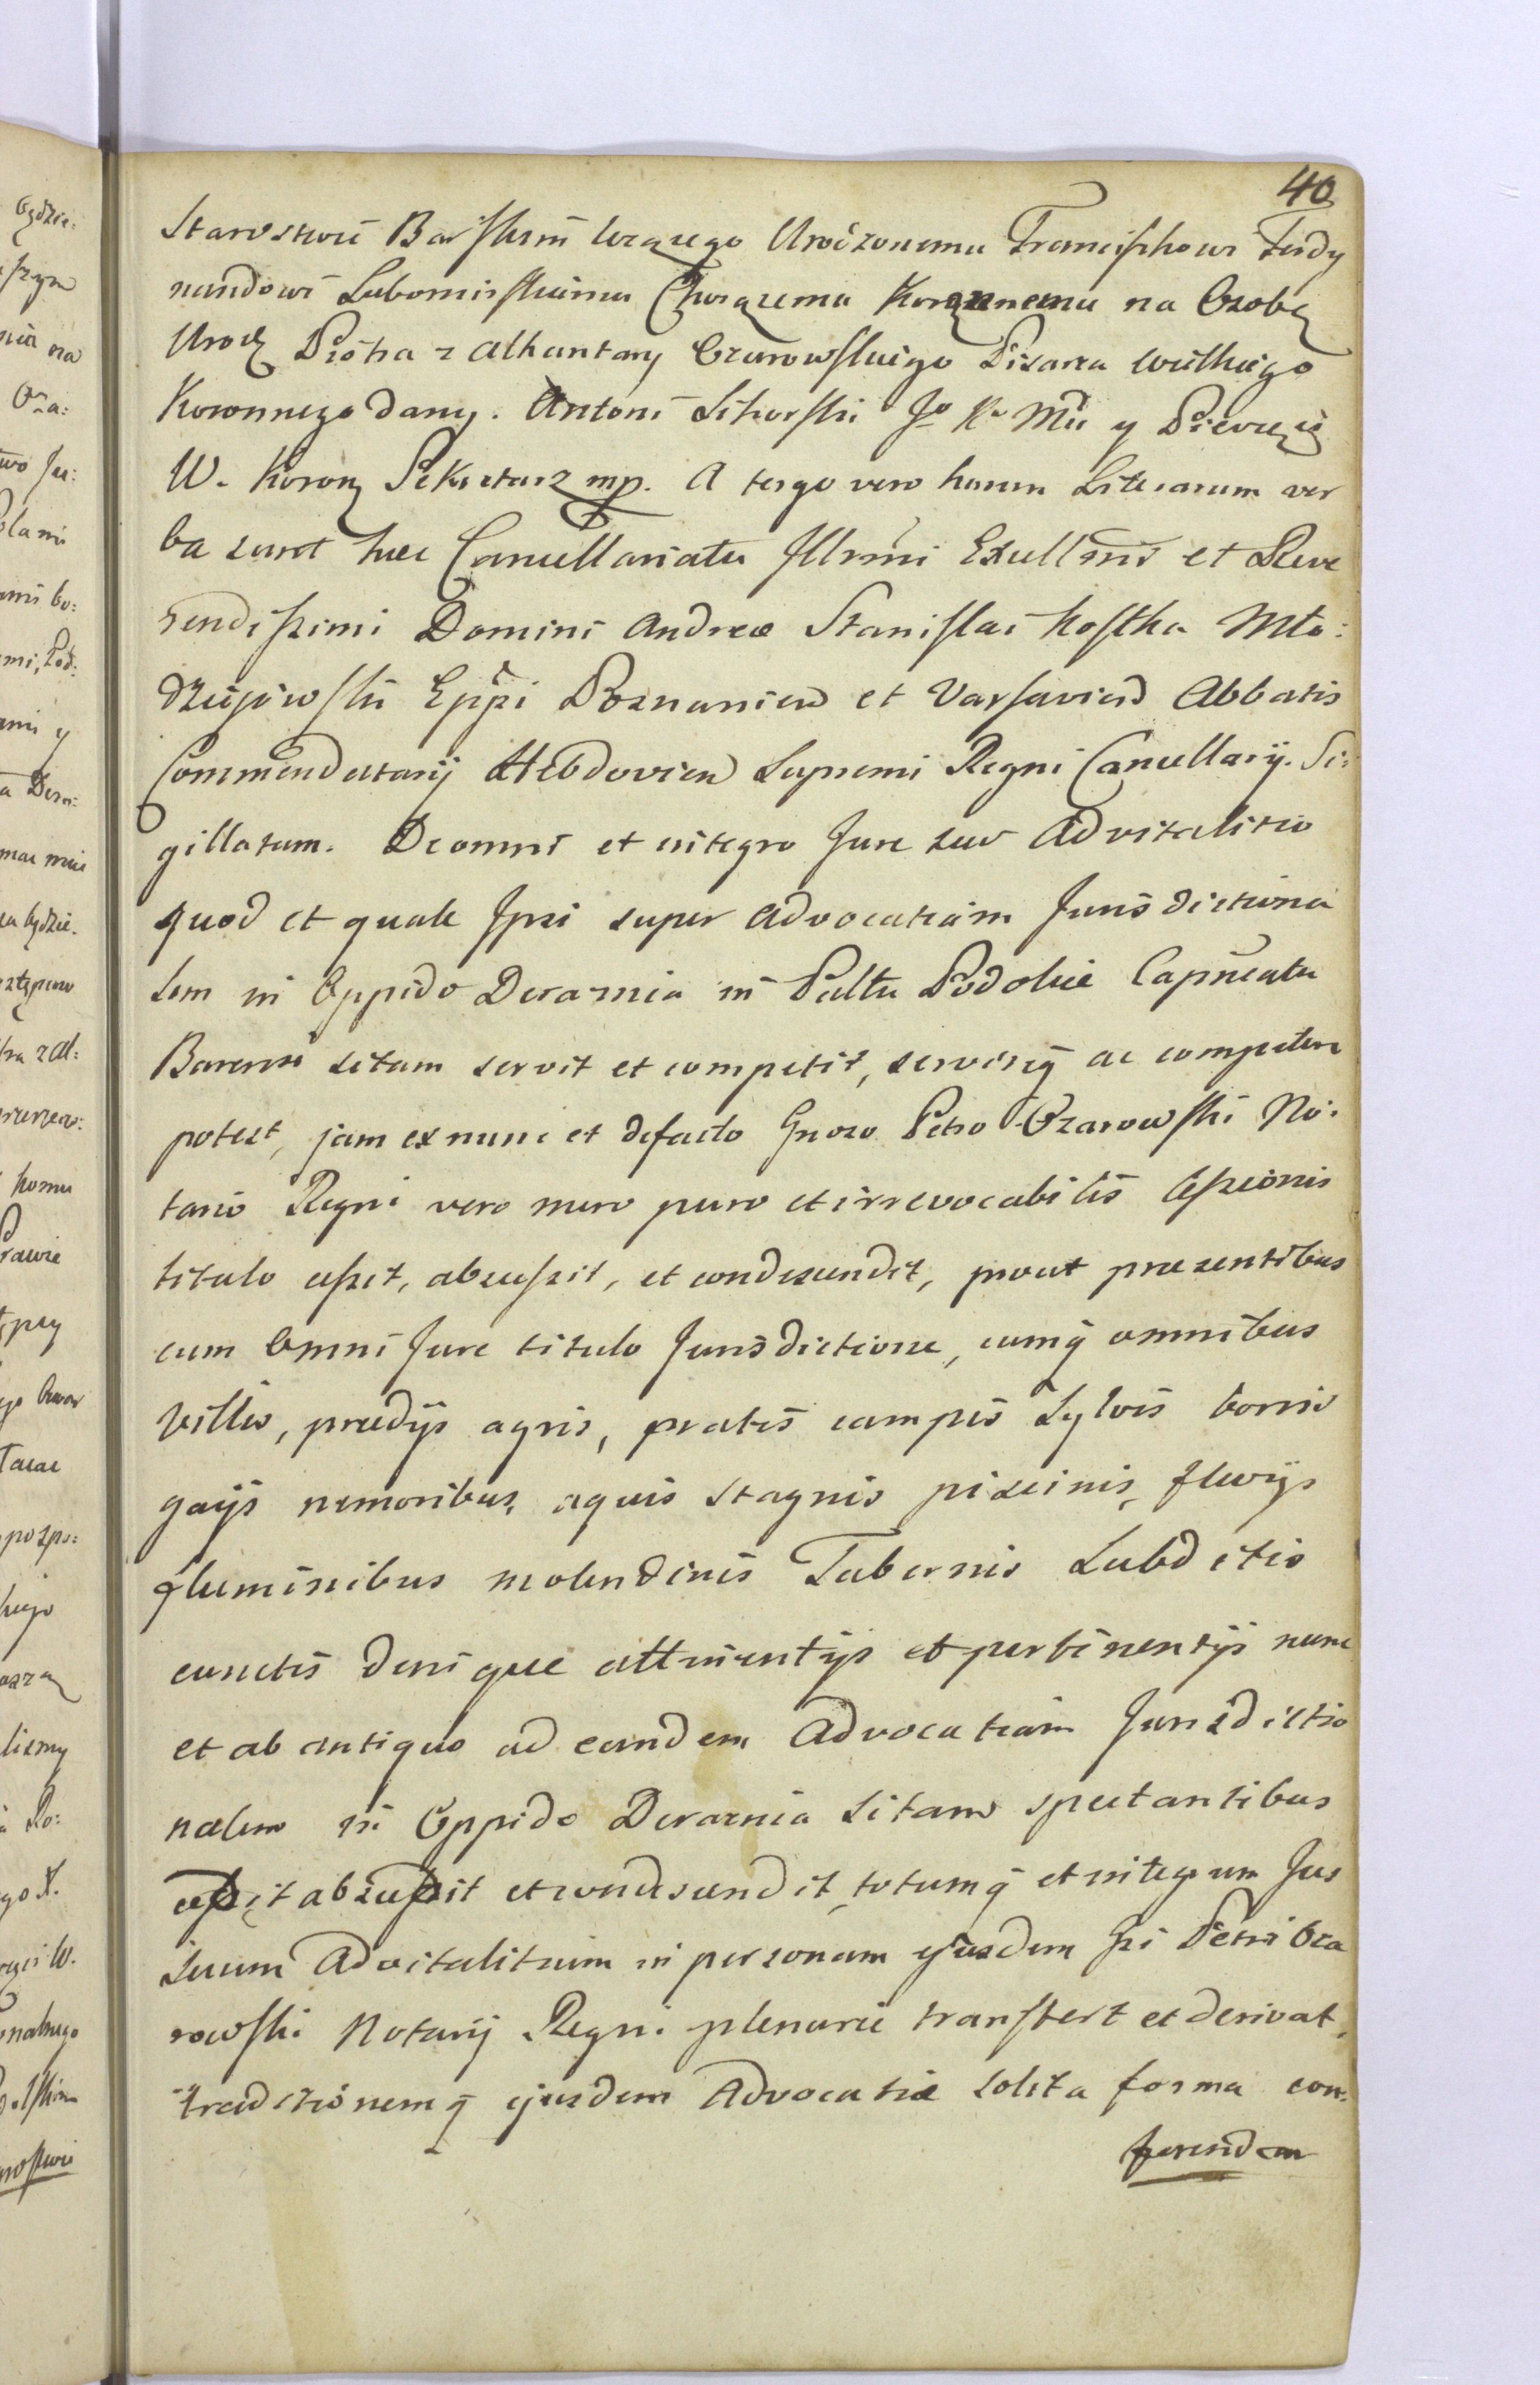 40
Starostwie Barskim leżącego Urodzonemu Franciszkowi Ferdy
nandowi Lubomirskiemu Chorążemu Koronnemu na Osobę
Urodz Piotra z Alkantary Ożarowskiego Pisarza wielkiego
Koronnego dany. Antoni Sikorski Jo Kr Mci y Pieczęci
W. Korony Sekretarz mp. A tergo vero harum Literarum ver
ba sunt hæc Cancellariatu Illrmi Excellmi et Reve
rendissimi Domini Andreæ Stanislai Kostka Mło:
dziejowski Eppi Posnanien et Varsavien Abbatis
Commendatarij Hebdovien Supremi Regni Cancellarij. Si:
gillatum. De omni et integro Jure suo Advitalitio
quod et quale Ipsi super Advocatiam Jurisdictiona
lem in Oppido Deraznia in Palttu Podoliæ Capneatu
Barensi sitam servit et competit, servireq ac competere
potest, jam ex nunc et defacto Gnoso Petro Ożarowski No:
tario Regni vero mero puro et irrevocabilis cessionis
titulo cessit, abscessit, et condescendit, prout præsentibus
cum Omni Jure titulo Jurisdictione, cumq omnibus
villis, prædijs agris, pratis campis Sylvis borris
gaijs nemoribus, aquis stagnis piscinis, fluvijs
fluminibus molendinis Tabernis Subditis
cunctis denique attinentijs et pertinentijs nunc
et ab antiquo ad eandem Advocatiam Jurisdictio
nalem in Oppido Deraznia Sitam spectantibus
cessit abscessit et condescendit, totumq et integrum Jus
suum Advitalitium in personam ejusdem Gsi Petri Oza
rowski Notarij Regni plenarie transfert et derivat,
traditionemq ejusdem Advocatiæ solita forma con:
ferendam